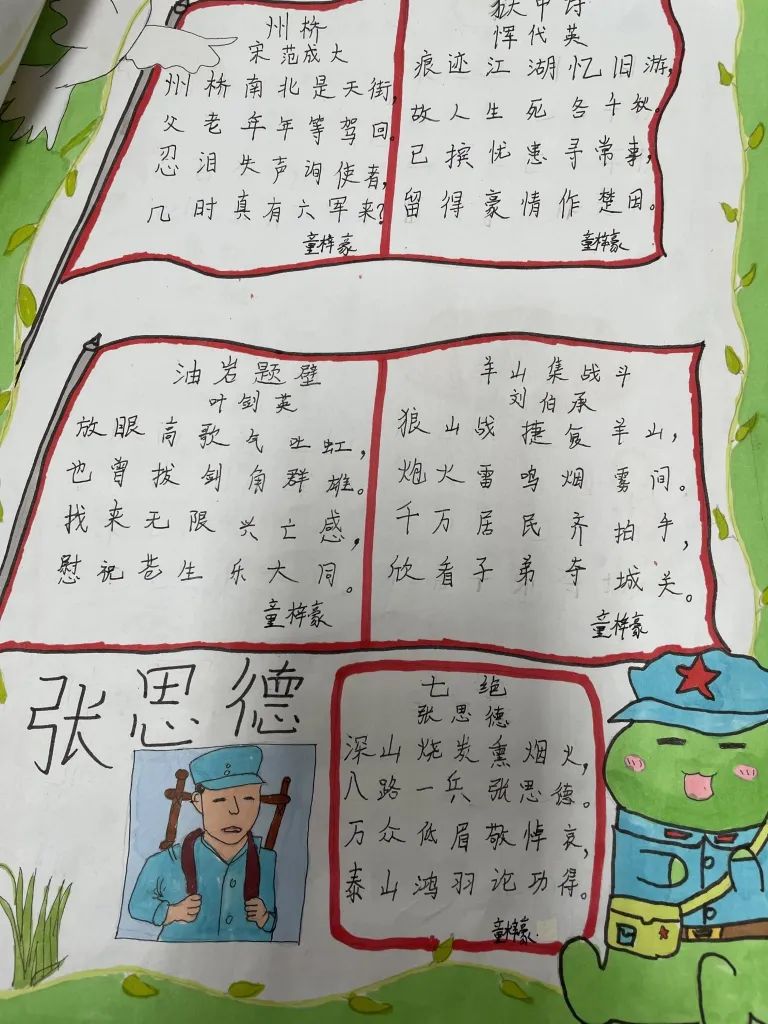 州桥
宋 范成大
州桥南北是天街,
父老年年等驾回。
忍泪失声询使者,
几时真有六军来?
童梓豪
狱中诗
恽代英
痕迹江湖忆旧游,
故人生死各千秋。
已摈忧患寻常事,
留得豪情作楚囚。
童梓豪
油岩题壁
叶剑英
放眼高歌气吐虹,
也曾拔剑角群雄。
找来无限兴亡感,
慰祝苍生乐大同。
童梓豪
羊山集战斗
刘伯承
狼山战捷复羊山,
炮火雷鸣烟雾间。
千万居民齐拍手,
欣看子弟夺城关。
童梓豪
张思德
七绝
张思德
深山烧炭熏烟火,
八路一兵张思德。
万众低眉敬悼哀,
泰山鸿羽论功得。
童梓豪